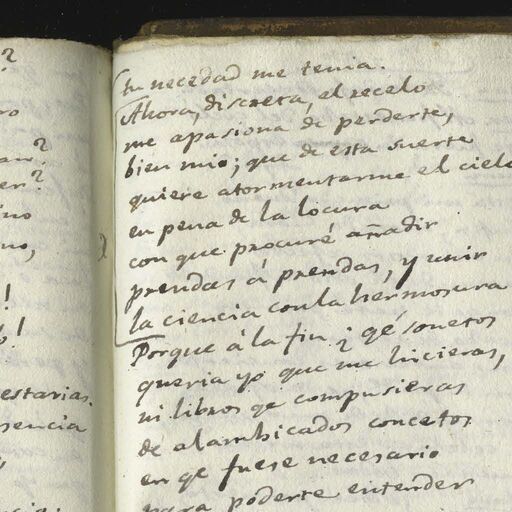 ?
ro
?
er?
ino
no,
!
!
estarias.
sencia
tu necedad me tenia.
Ahora, discreta, el recelo
me apasiona de perderte,
bien mio; que de esta suerte
quiere atormentarme el cielo
en pena de la locura
con que procuré añadir
prendas á prendas, y unir
la ciencia con la hermosura
Porque á la fin ¿ qé sonetos
queria yo que me hicieras,
ni libros qe compusieras
de alambicados concetos
en qe fuese necesario
para poderte entender